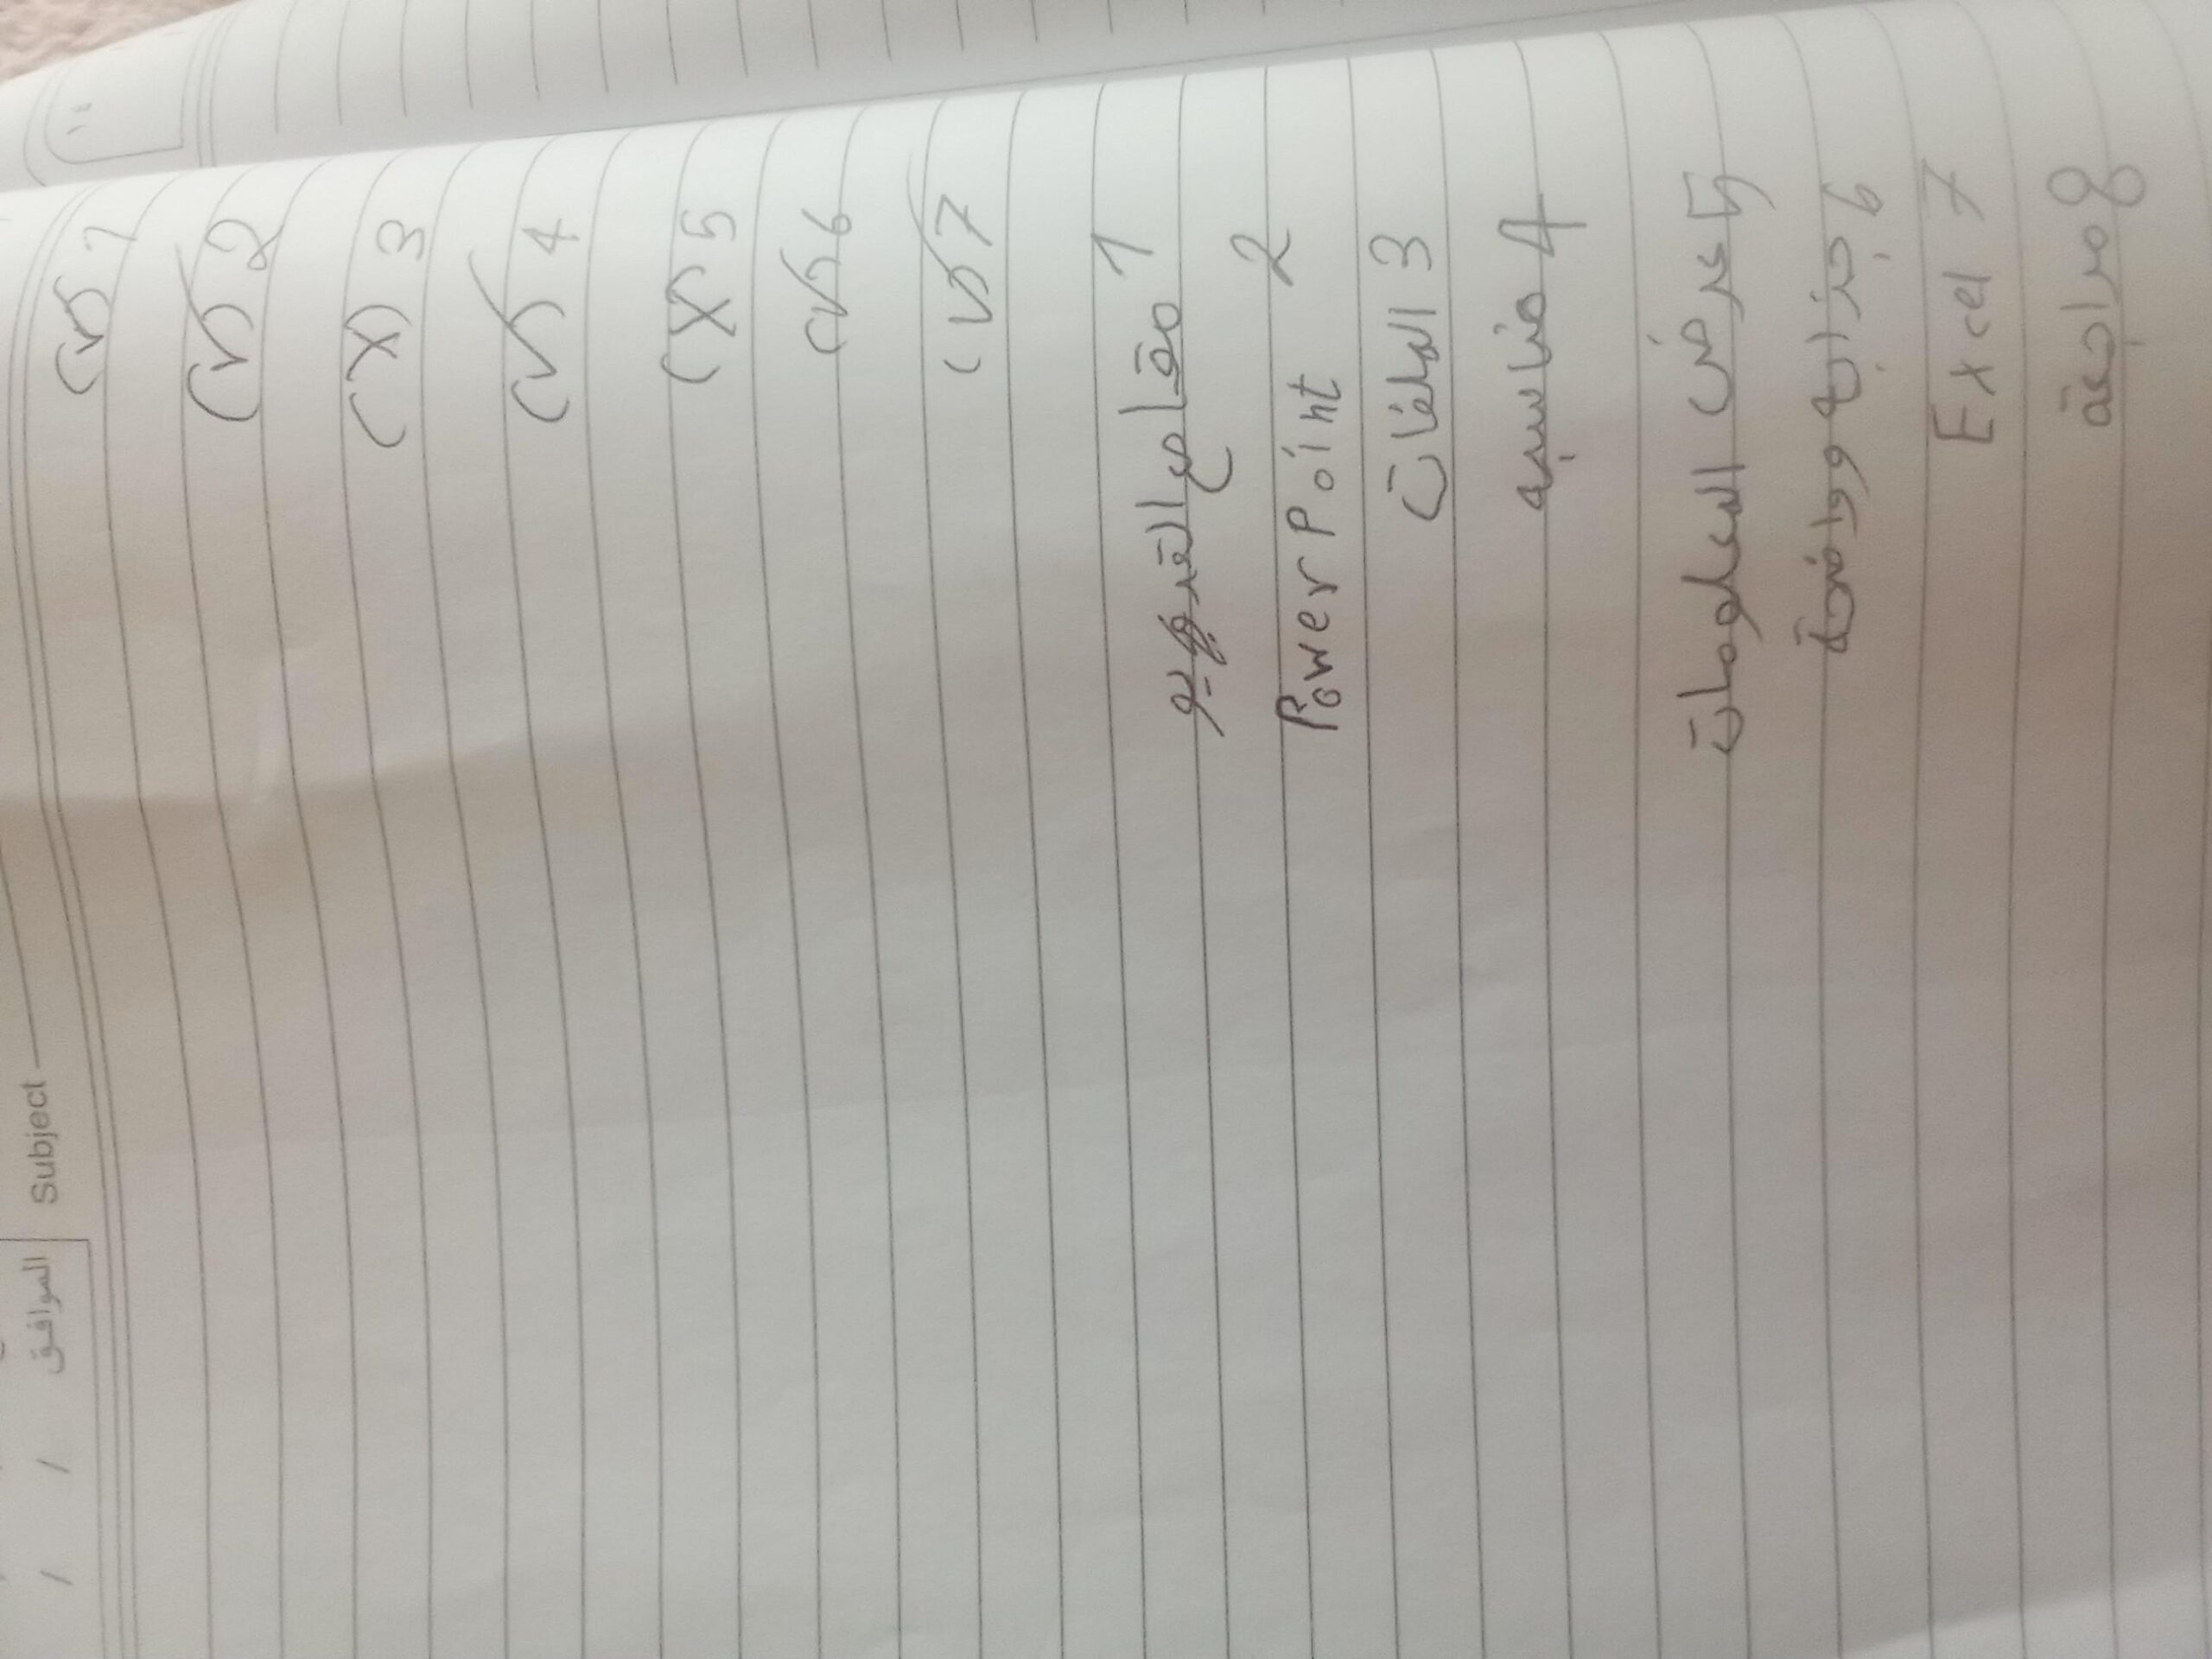 الموافق / / Subject
1 (✓)
2 (✓)
3 (X)
4 (✓)
5 (X)
6 (✓)
7 (✓)
1 مقاطع الفيديو
2 Power Point
3 الملفات
4 مناسبه
5 عرض المعلومات
6 جذابة وواضحة
7 Excel
8 مراجعة